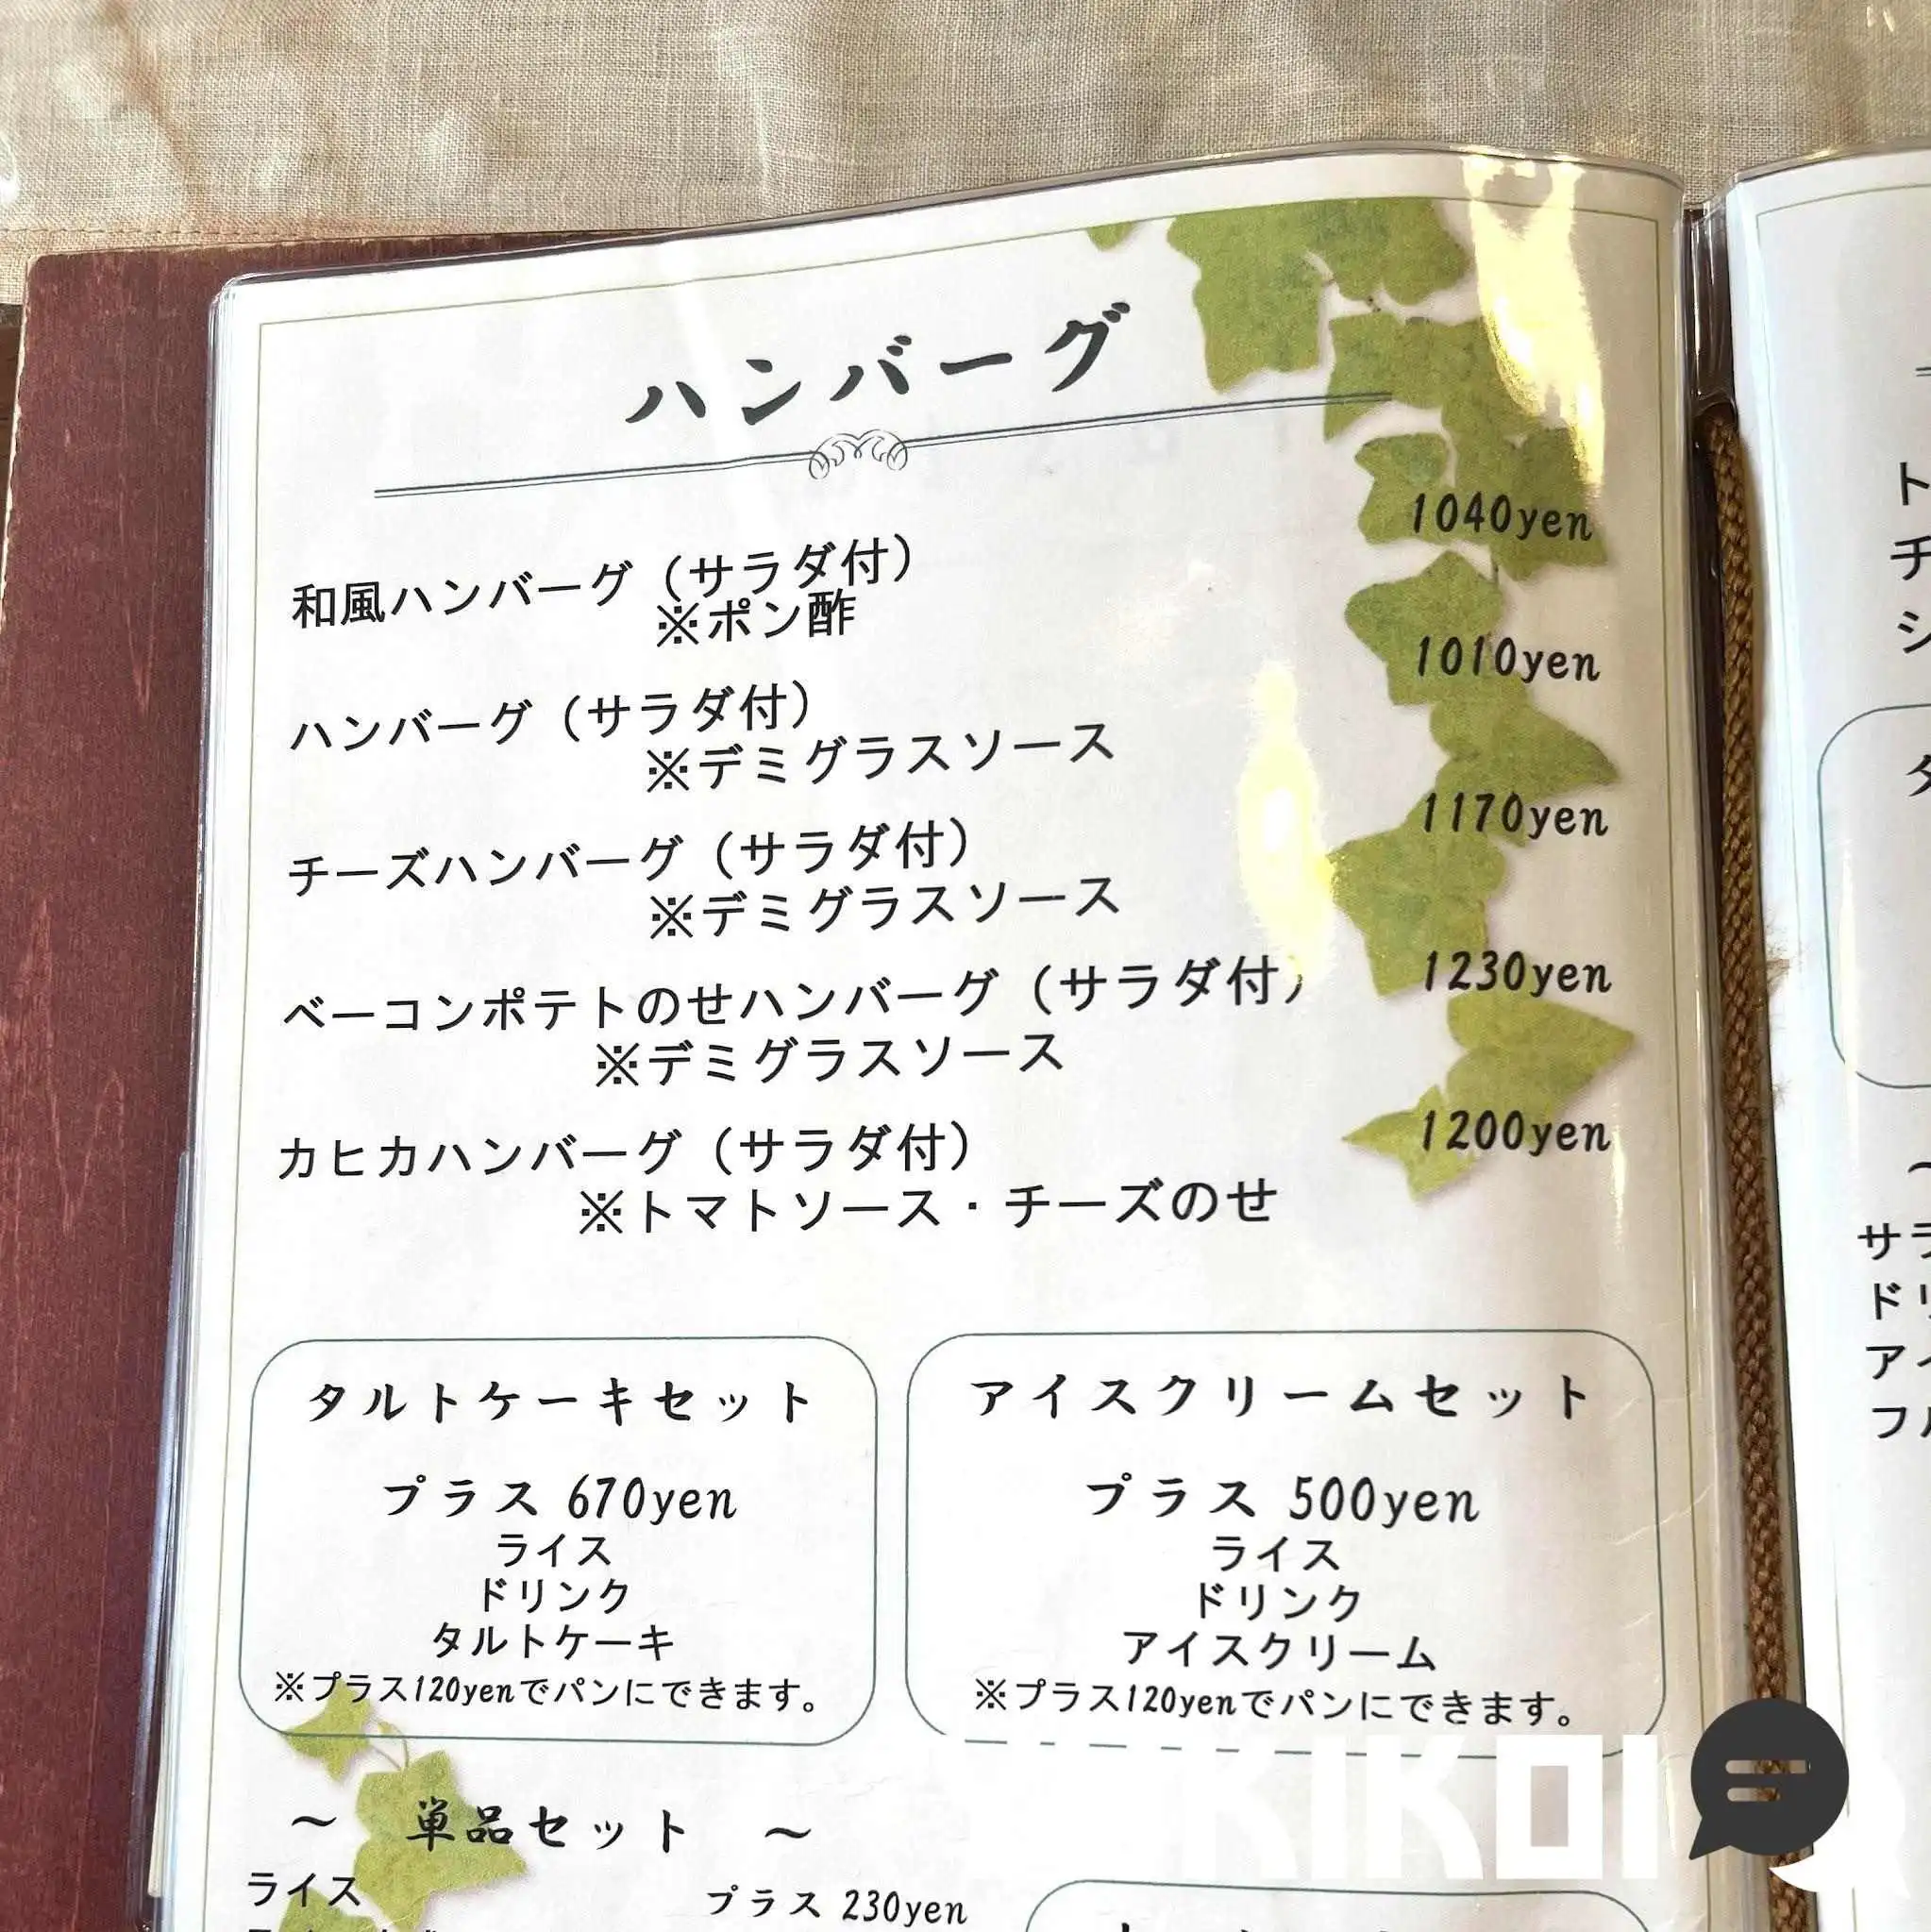 ハンバーグ
和風ハンバーグ（サラダ付） 1040yen
※ポン酢
ハンバーグ（サラダ付） 1010yen
※デミグラスソース
チーズハンバーグ（サラダ付） 1170yen
※デミグラスソース
ベーコンポテトのせハンバーグ（サラダ付） 1230yen
※デミグラスソース
カヒカハンバーグ（サラダ付） 1200yen
※トマトソース・チーズのせ
タルトケーキセット
プラス 670yen
ライス
ドリンク
タルトケーキ
※プラス120yenでパンにできます。
アイスクリームセット
プラス 500yen
ライス
ドリンク
アイスクリーム
※プラス120yenでパンにできます。
～ 単品セット ～
ライス プラス 230yen
KIKOI